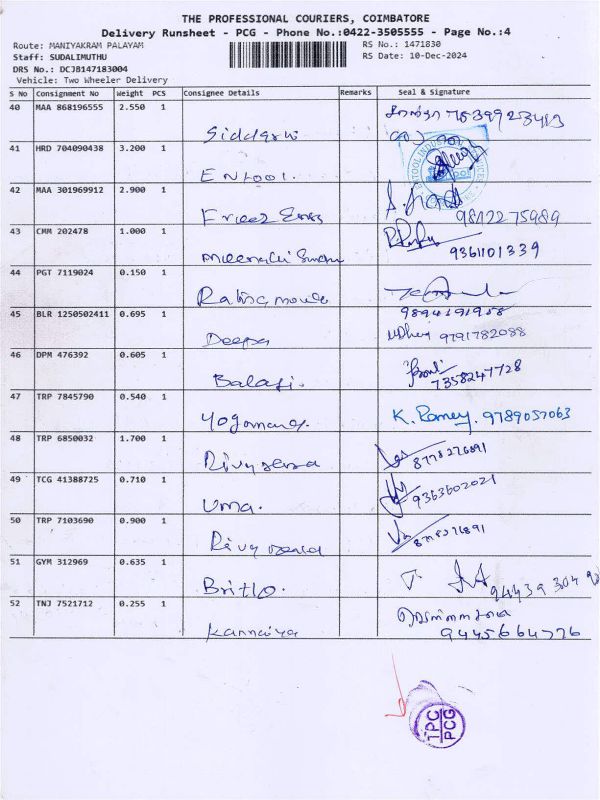 THE PROFESSIONAL COURIERS, COIMBATORE
Delivery Runsheet - PCG - Phone No.:0422-3505555 - Page No.:4
Route: MANIYAKRAM PALAYAM RS No.: 1471830
Staff: SUDALIMUTHU RS Date: 10-Dec-2024
DRS No.: DCJB147183004
Vehicle: Two Wheeler Delivery
S No Consignment No Weight PCS Consignee Details Remarks Seal & Signature
40 MAA 868196555 2.550 1
41 HRD 704090438 3.200 1
42 MAA 301969912 2.900 1
9842275989
43 CMM 202478 1.000 1
9361101339
44 PGT 7119024 0.150 1
45 BLR 1250502411 0.695 1
Deepa 9791782088
46 DPM 476392 0.605 1
Balaji. 7358247728
47 TRP 7845790 0.540 1
K. Ramey. 9789057063
48 TRP 6850032 1.700 1
8778276891
49 TCG 41388725 0.710 1
Uma. 9363602021
50 TRP 7103690 0.900 1
51 GYM 312969 0.635 1
Britto.
52 TNJ 7521712 0.255 1
Kannaiya 9445664776
TPC
PCG